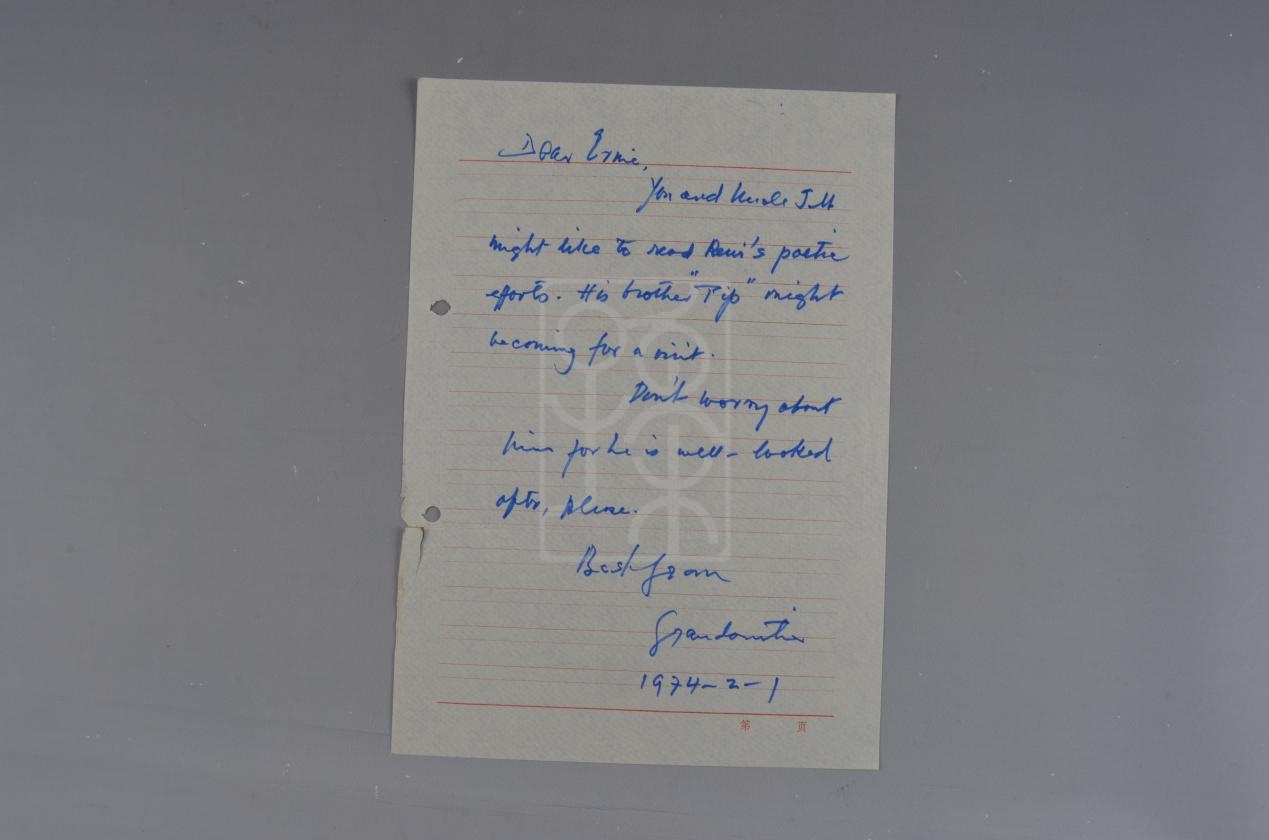 Dear Ernie,
You and Uncle
might like to read 's poetic
efforts. His brother "Tip" might
be coming for a visit.
Don't worry about
him for he is well-looked
after, please.
Best from
Grandmother
1974-2-1
第 页